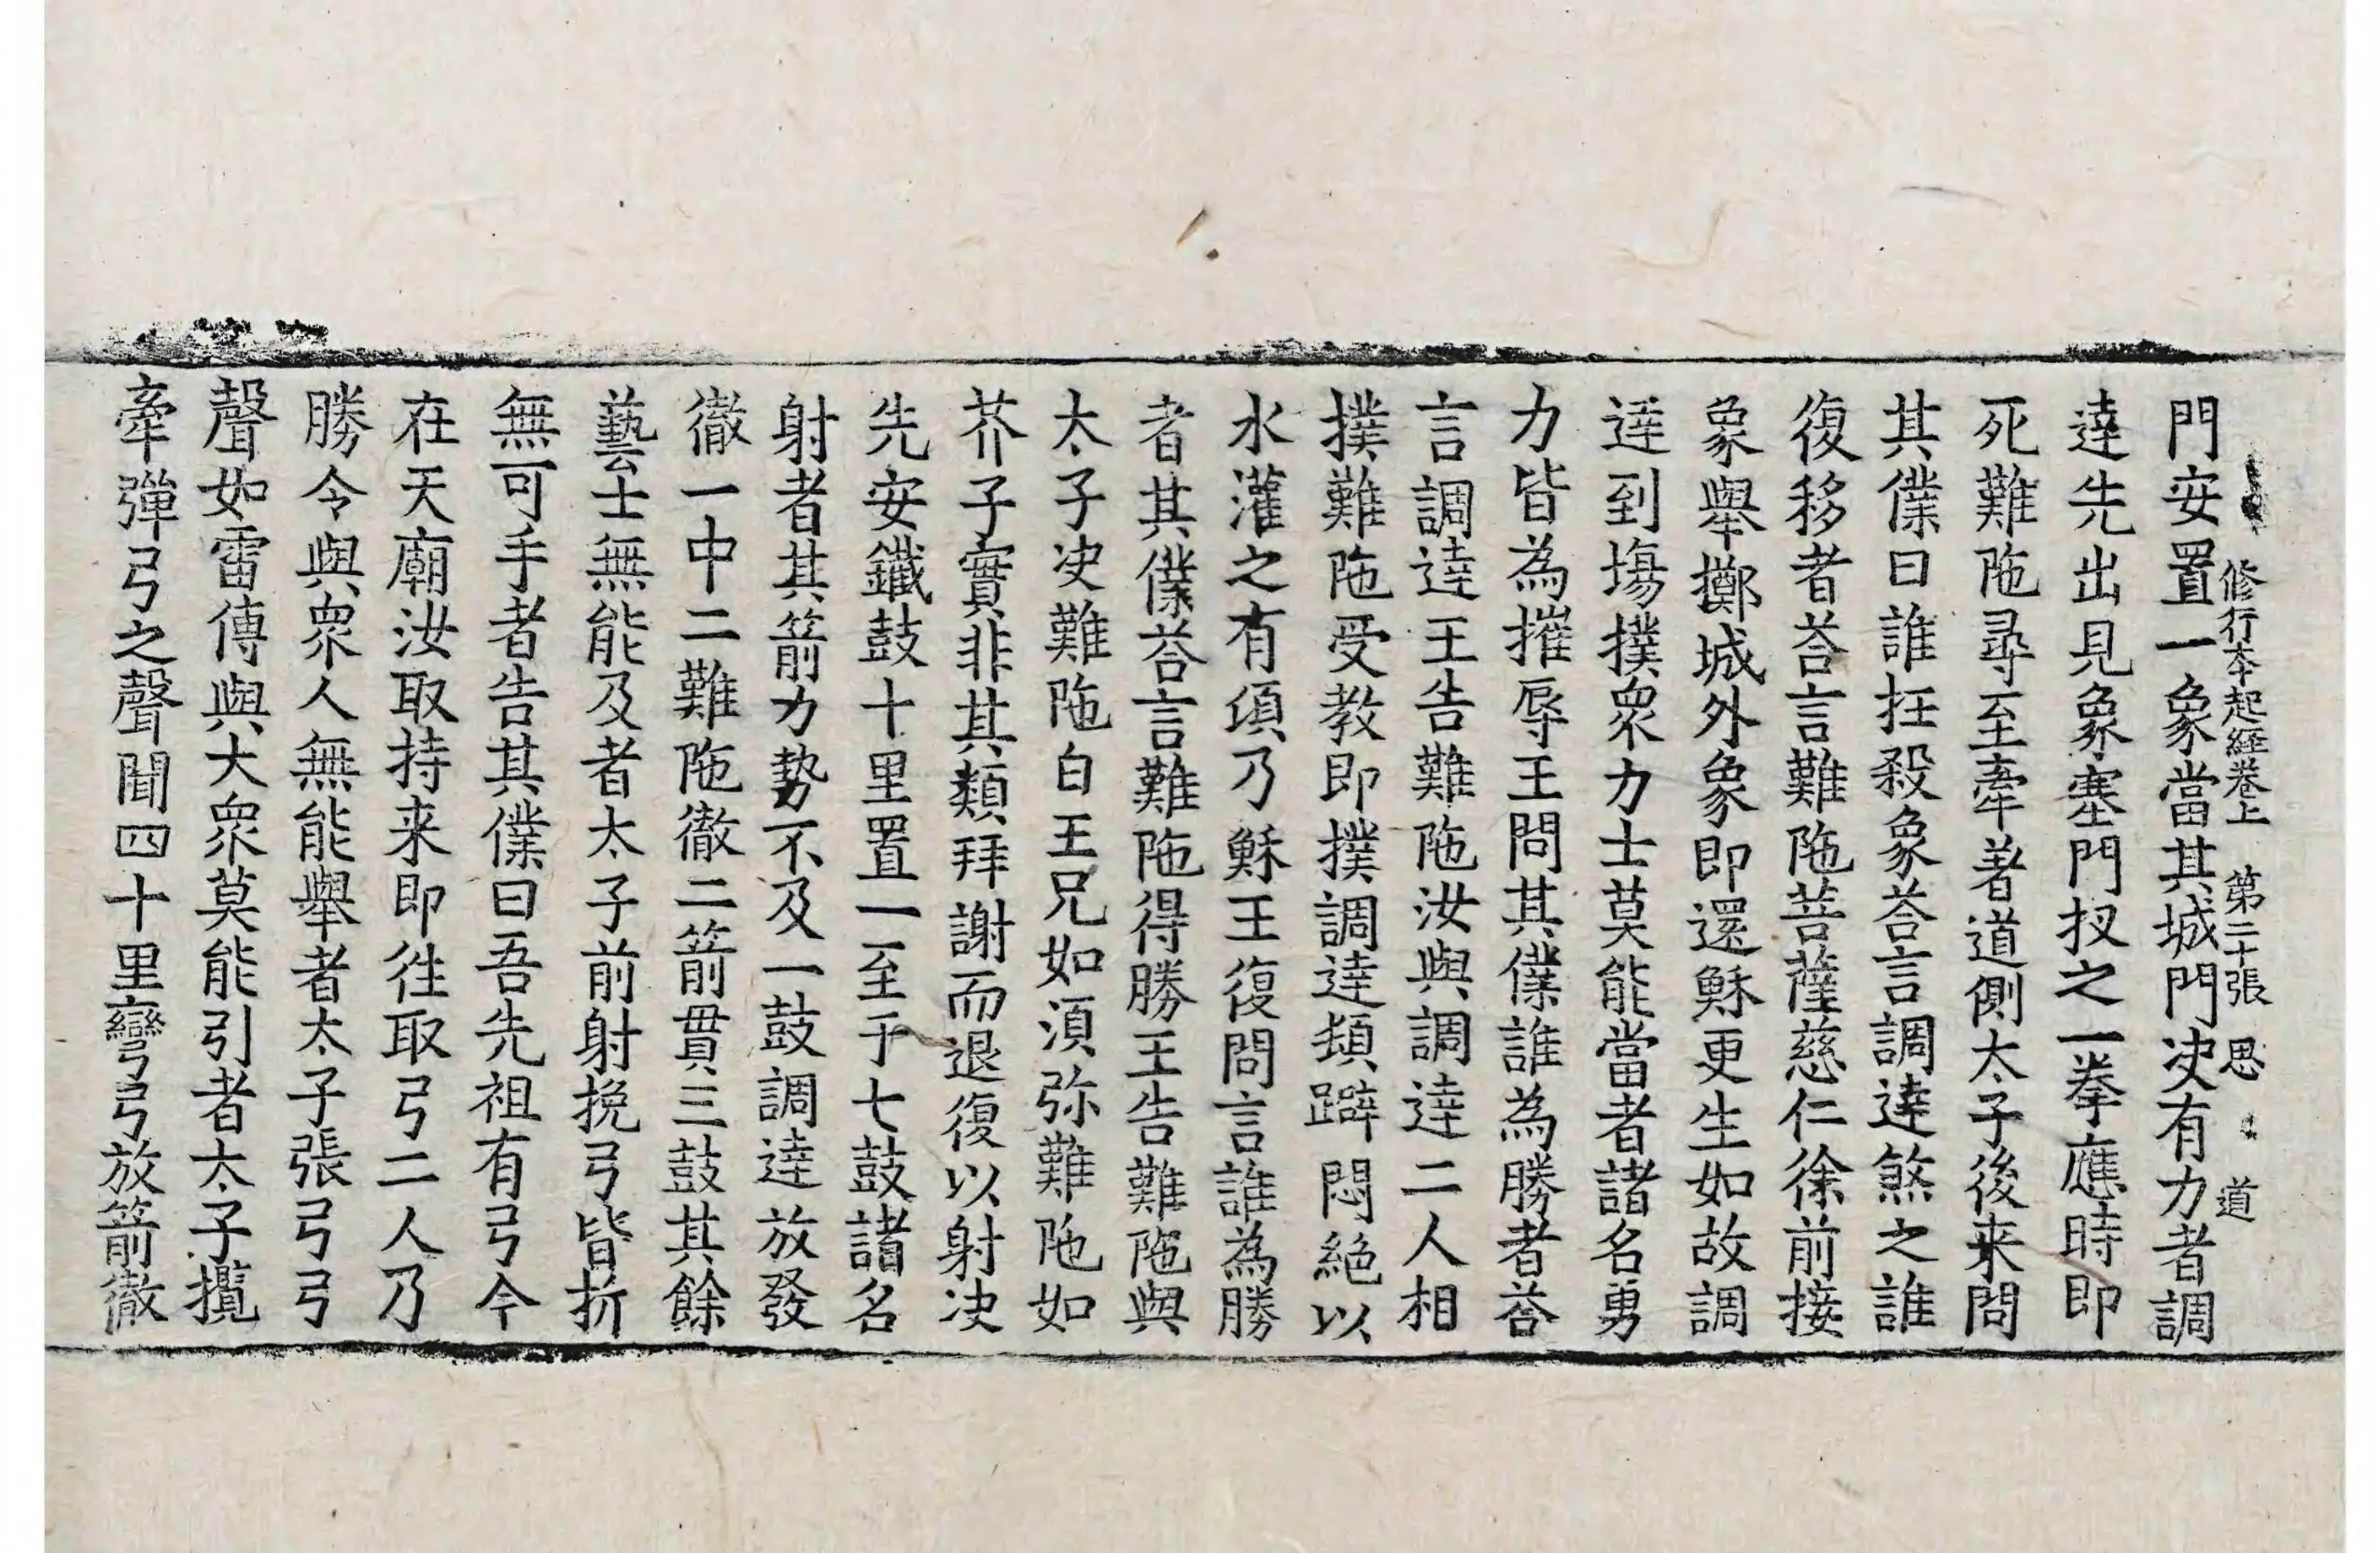 修行本起経巻上　第二十張　思　道
門安置一象當其城門决有力者調
達先出見象塞門扠之一拳應時即
死難陁尋至牽著道側太子後来問
其僕曰誰抂殺象荅言調達煞之誰
復移者荅言難陁菩薩慈仁徐前接
象舉擲城外象即還穌更生如故調
達到塲撲衆力士莫能當者諸名勇
力皆為摧辱王問其僕誰為勝者荅
言調達王告難陁汝與調達二人相
撲難陁受教即撲調達頓躃悶絕以
水灌之有湏乃穌王復問言誰為勝
者其僕荅言難陁得勝王告難陁與
太子决難陁白王兄如湏弥難陁如
芥子實非其類拜謝而退復以射决
先安鐵鼓十里置一至于七鼓諸名
射者其箭力勢不及一鼓調達放發
徹一中二難陁徹二箭貫三鼓其餘
藝士無能及者太子前射挽弓皆折
無可手者告其僕曰吾先祖有弓今
在天廟汝取持来即徃取弓二人乃
勝令與衆人無能舉者太子張弓弓
聲如雷傳與大衆莫能引者太子攬
牽彈弓之聲聞四十里彎弓放箭徹